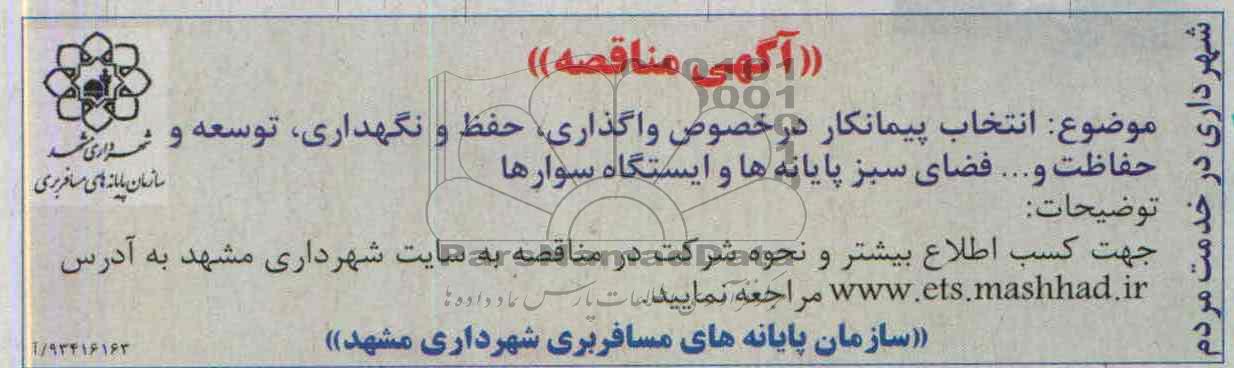 ((آگهی مناقصه))
موضوع: انتخاب پیمانکار درخصوص واگذاری، حفظ و نگهداری، توسعه و
حفاظت و... فضای سبز پایانه ها و ایستگاه سوارها
توضیحات:
جهت کسب اطلاع بیشتر و نحوه شرکت در مناقصه به سایت شهرداری مشهد به آدرس
www.ets.mashhad.ir مراجعه نمایید.
((سازمان پایانه های مسافربری شهرداری مشهد))
شهرداری در خدمت مردم
شهرداری مشهد
سازمان پایانه های مسافربری
۹۳۴۱۶۱۶۳/آ
ParsNamadData